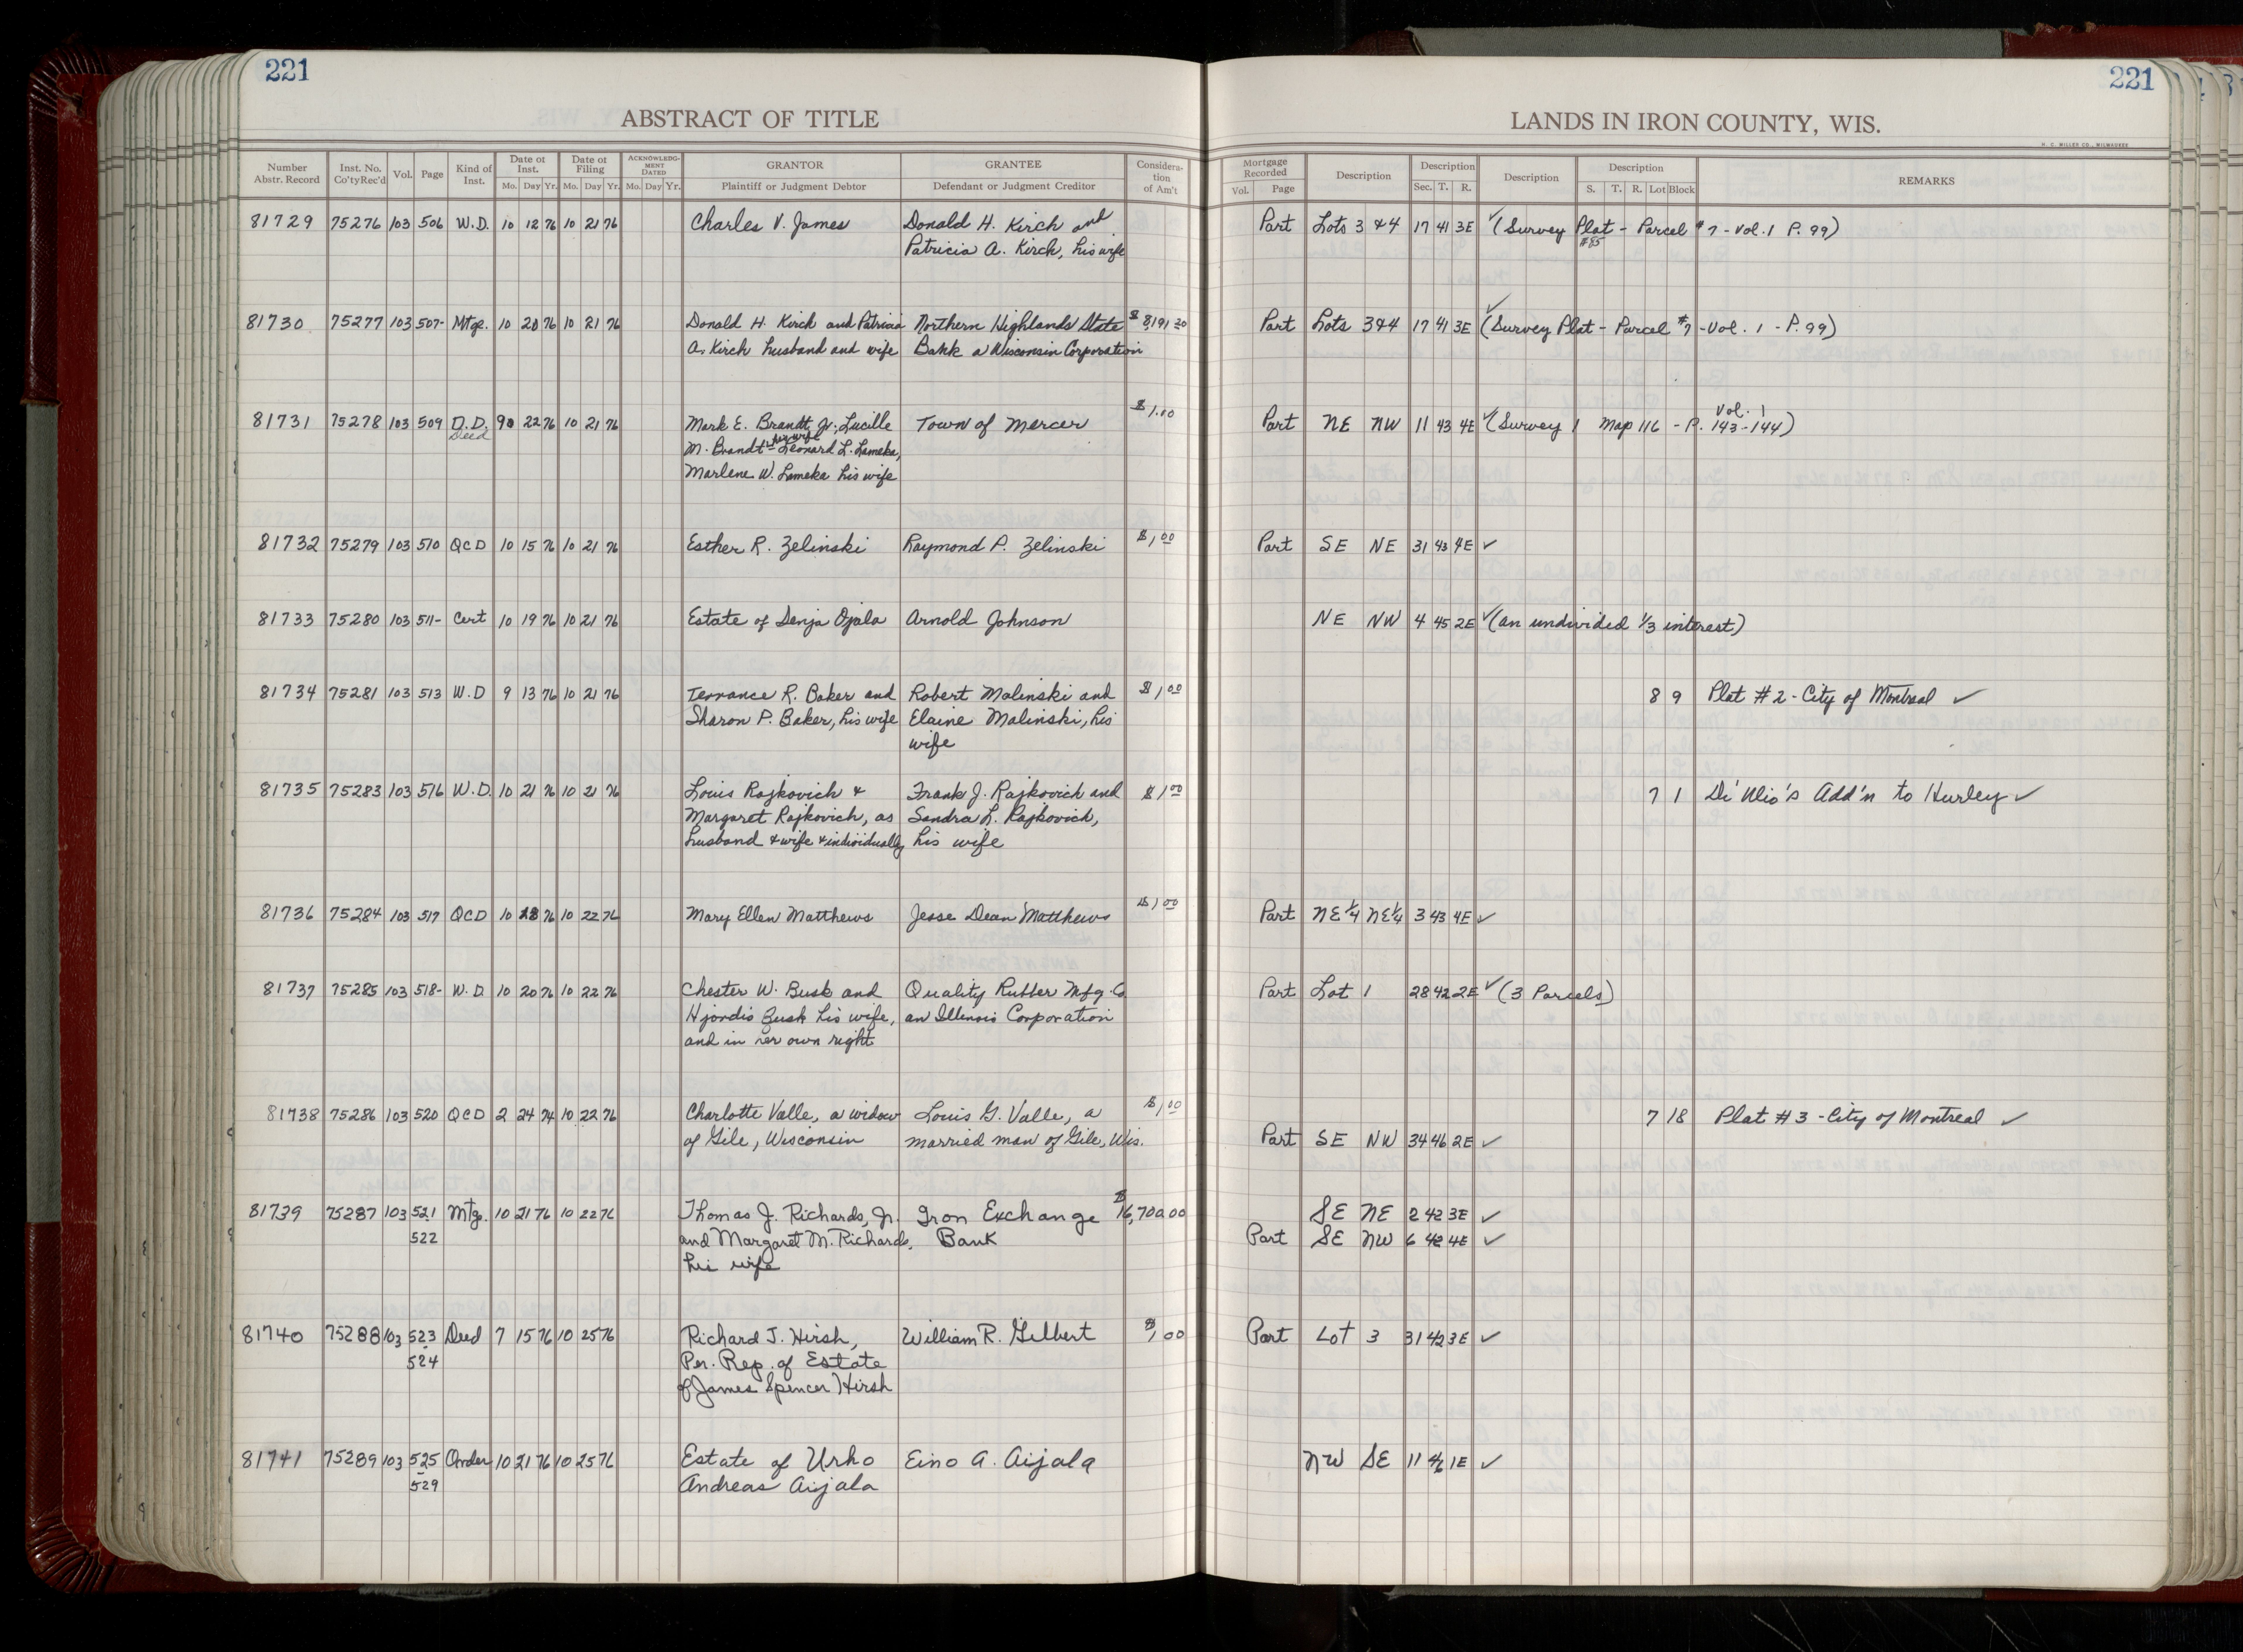 221
221
ABSTRACT OF TITLE
LANDS IN IRON COUNTY, WIS.
H. C. MILLER CO., MILWAUKEE
Number Abstr. Record Inst. No. Co'tyRec'd Vol. Page Kind of Inst. Date of Inst. Mo. Day Yr. Date of Filing Mo. Day Yr. ACKNOWLEDGMENT DATED Mo. Day Yr. GRANTOR Plaintiff or Judgment Debtor GRANTEE Defendant or Judgment Creditor Consideration of Am't Mortgage Recorded Vol. Page Description Description Sec. T. R. Description Description S. T. R. Lot Block REMARKS
81729 75276 103 506 W.D. 10 12 76 10 21 76 Charles V. James Donald H. Kirch and Part Lots 3 & 4 17 41 3E ✓ (Survey Plat - Parcel #7 - Vol. 1 P. 99)
Patricia A. Kirch, his wife #85
81730 75277 103 507- Mtge. 10 20 76 10 21 76 Donald H. Kirch and Patricia Northern Highlands State $ 8,191 20 Part Lots 3&4 17 41 3E ✓ (Survey Plat - Parcel #7 - Vol. 1 - P. 99)
A. Kirch husband and wife Bank a Wisconsin Corporation
81731 75278 103 509 D.D. 22 76 10 21 76 Mark E. Brandt, Jr., Lucille Town of Mercer $1.00 Part NE NW 11 43 4E ✓ (Survey 1 Map 116 - Vol. 1 P. 143-144)
Deed M. Brandt his wife Leonard L. Lameka,
Marlene W. Lameka his wife
81732 75279 103 510 QCD 10 15 76 10 21 76 Esther R. Zelinski Raymond P. Zelinski $1 00 Part SE NE 31 43 4E ✓
81733 75280 103 511- Cert 10 19 76 10 21 76 Estate of Senja Ojala Arnold Johnson NE NW 4 45 2E ✓ (an undivided 1/3 interest)
81734 75281 103 513 W.D 9 13 76 10 21 76 Terrance R. Baker and Robert Malinski and $1 00 8 9 Plat #2 - City of Montreal ✓
Sharon P. Baker, his wife Elaine Malinski, his
wife
81735 75283 103 516 W.D. 10 21 76 10 21 76 Louis Rajkovich & Frank J. Rajkovich and $1 00 7 1 Di'Ulio's Add'n to Hurley ✓
Margaret Rajkovich, as Sandra L. Rajkovich,
husband & wife & individually his wife
81736 75284 103 517 QCD 10 76 10 22 76 Mary Ellen Matthews Jesse Dean Matthews $1 00 Part NE 1/4 NE 1/4 3 43 4E ✓
81737 75285 103 518- W.D. 10 20 76 10 22 76 Chester W. Busk and Quality Rubber Mfg. Co Part Lot 1 28 42 2E ✓ (3 Parcels)
Hjordis Busk his wife, an Illinois Corporation
and in her own right
81738 75286 103 520 QCD 2 24 74 10 22 76 Charlotte Valle, a widow Louis G. Valle, a $1 00 7 18 Plat #3 - City of Montreal ✓
of Gile, Wisconsin married man of Gile, Wis. Part SE NW 34 46 2E ✓
81739 75287 103 521 Mtg. 10 21 76 10 22 76 Thomas J. Richards, Jr. Iron Exchange $16,700.00 SE NE 2 42 3E ✓
522 and Margaret M. Richards, Bank Part SE NW 6 42 4E ✓
his wife
81740 75288 103 523 Deed 7 15 76 10 25 76 Richard J. Hirsh, William R. Gilbert $1.00 Part Lot 3 31 42 3E ✓
- 524 Per. Rep. of Estate
of James Spencer Hirsh
81741 75289 103 525 Order 10 21 76 10 25 76 Estate of Urho Eino A. Aijala NW SE 11 46 1E ✓
- 529 Andreas Aijala